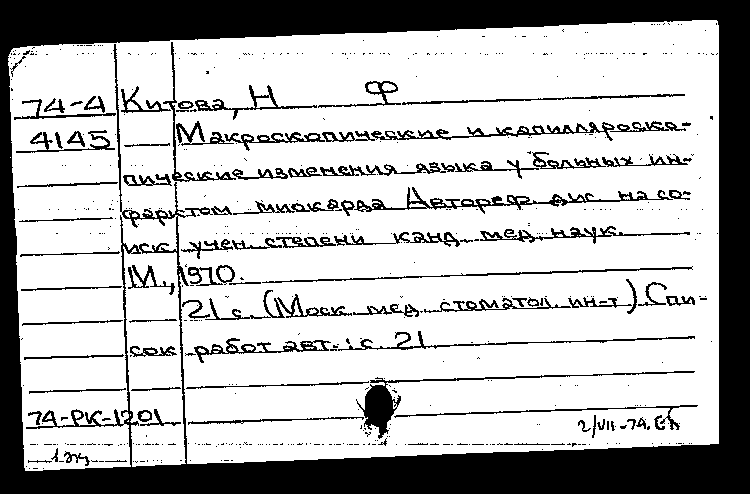 74-4 Китова, Н Ф
4145 Макроскопические и капилляроско-
пические изменения языка у больных ин-
фарктом миокарда Автореф. дис. на со-
иск. учен. степени канд. мед. наук.
М., 1970.
21 с. (Моск. мед. стоматол. ин-т). Спи-
сок работ авт.: с. 21
74-РК-1201
2/VII-74.
1 эк